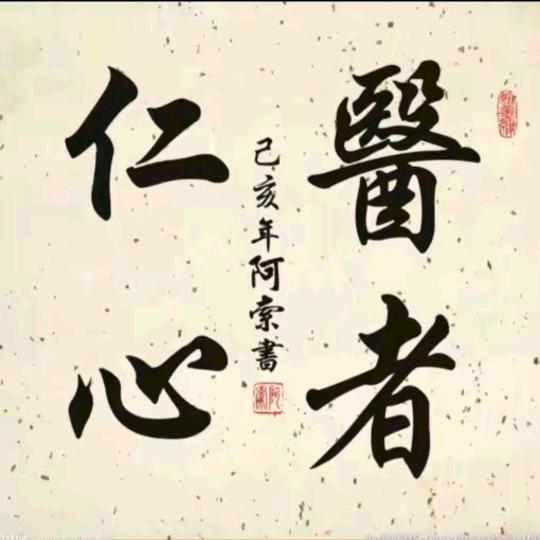 醫者
仁心
己亥年阿索書